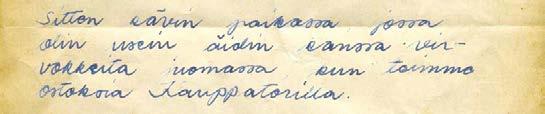 Sitten kävin paikassa jossa
olin usein äidin kanssa vir-
vokkeita juomassa kun toimme
ostoksia Kauppatorilla.